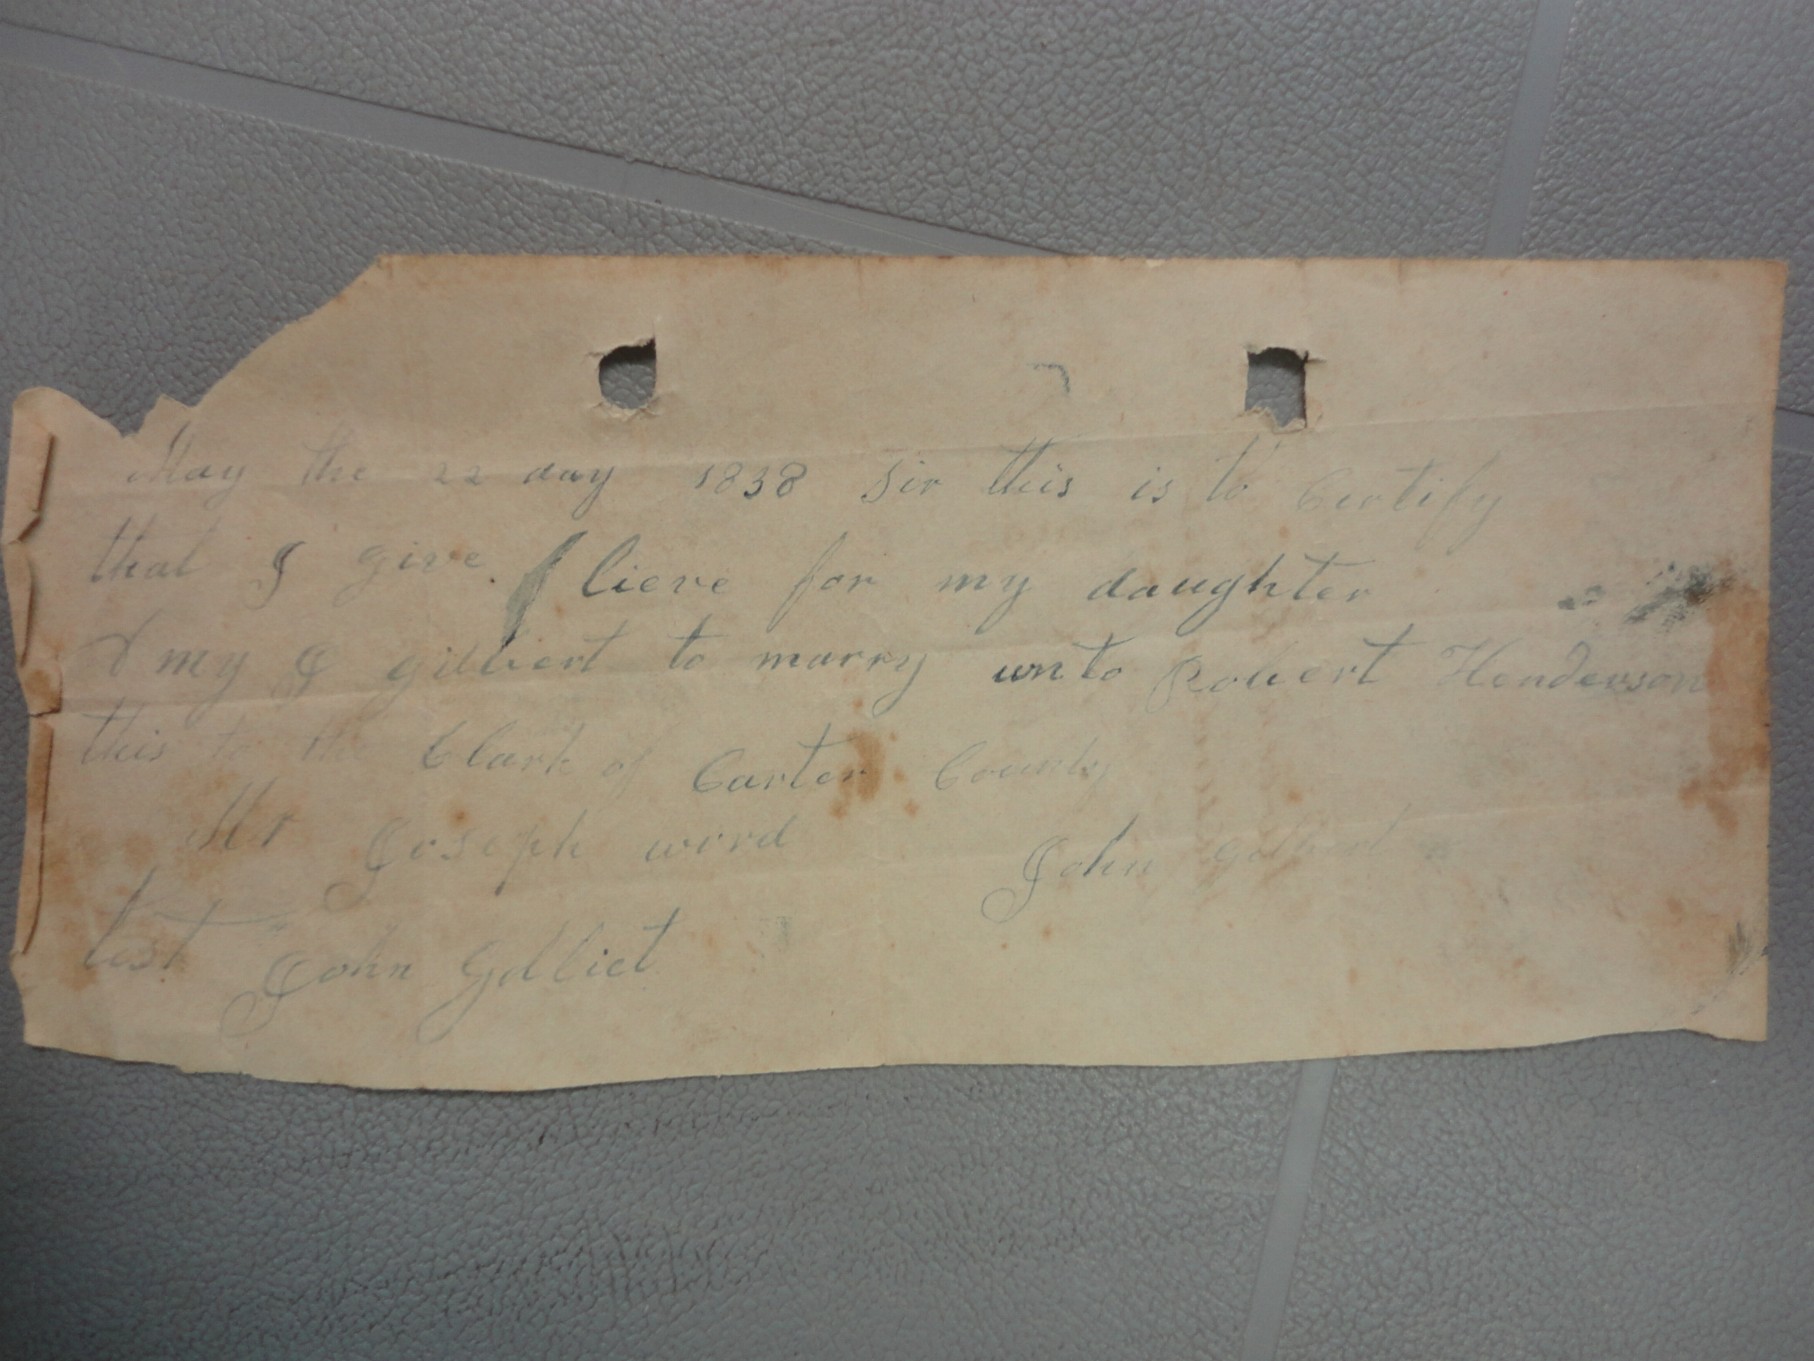 May the 22 day 1838 Sir this is to Certify
that I give lieve for my daughter
Amy J gilbert to marry unto Robert Henderson
this to the Clark of Carter County
Mr Joseph word John
test John